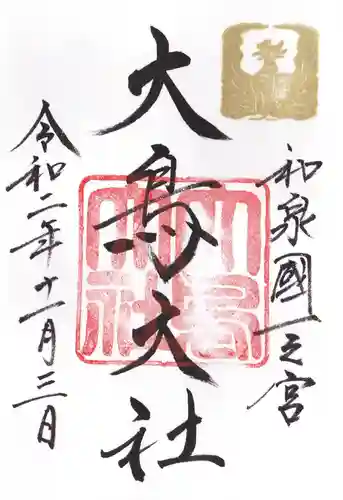 和泉國一之宮
大鳥大社
令和二年十一月三日
大鳥
大社